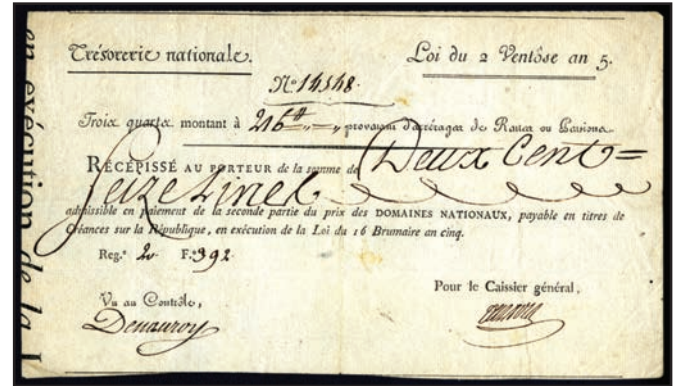 Trésorerie nationale. Loi du 2 Ventôse an 5.
N.º 14548.
Trois quarts montant à 216 ₶ „ — „ provenant d'arrérages de Rentes ou Pensions
RÉCÉPISSÉ AU PORTEUR de la somme de Deux Cent =
Seize Livres
admissible en paiement de la seconde partie du prix des DOMAINES NATIONAUX, payable en titres de
Créances sur la République, en exécution de la Loi du 16 Brumaire an cinq.
Reg.º 2. F.º 392.
Pour le Caissier général,
Vu au Contrôle,
Denauroy
en exécution de la L